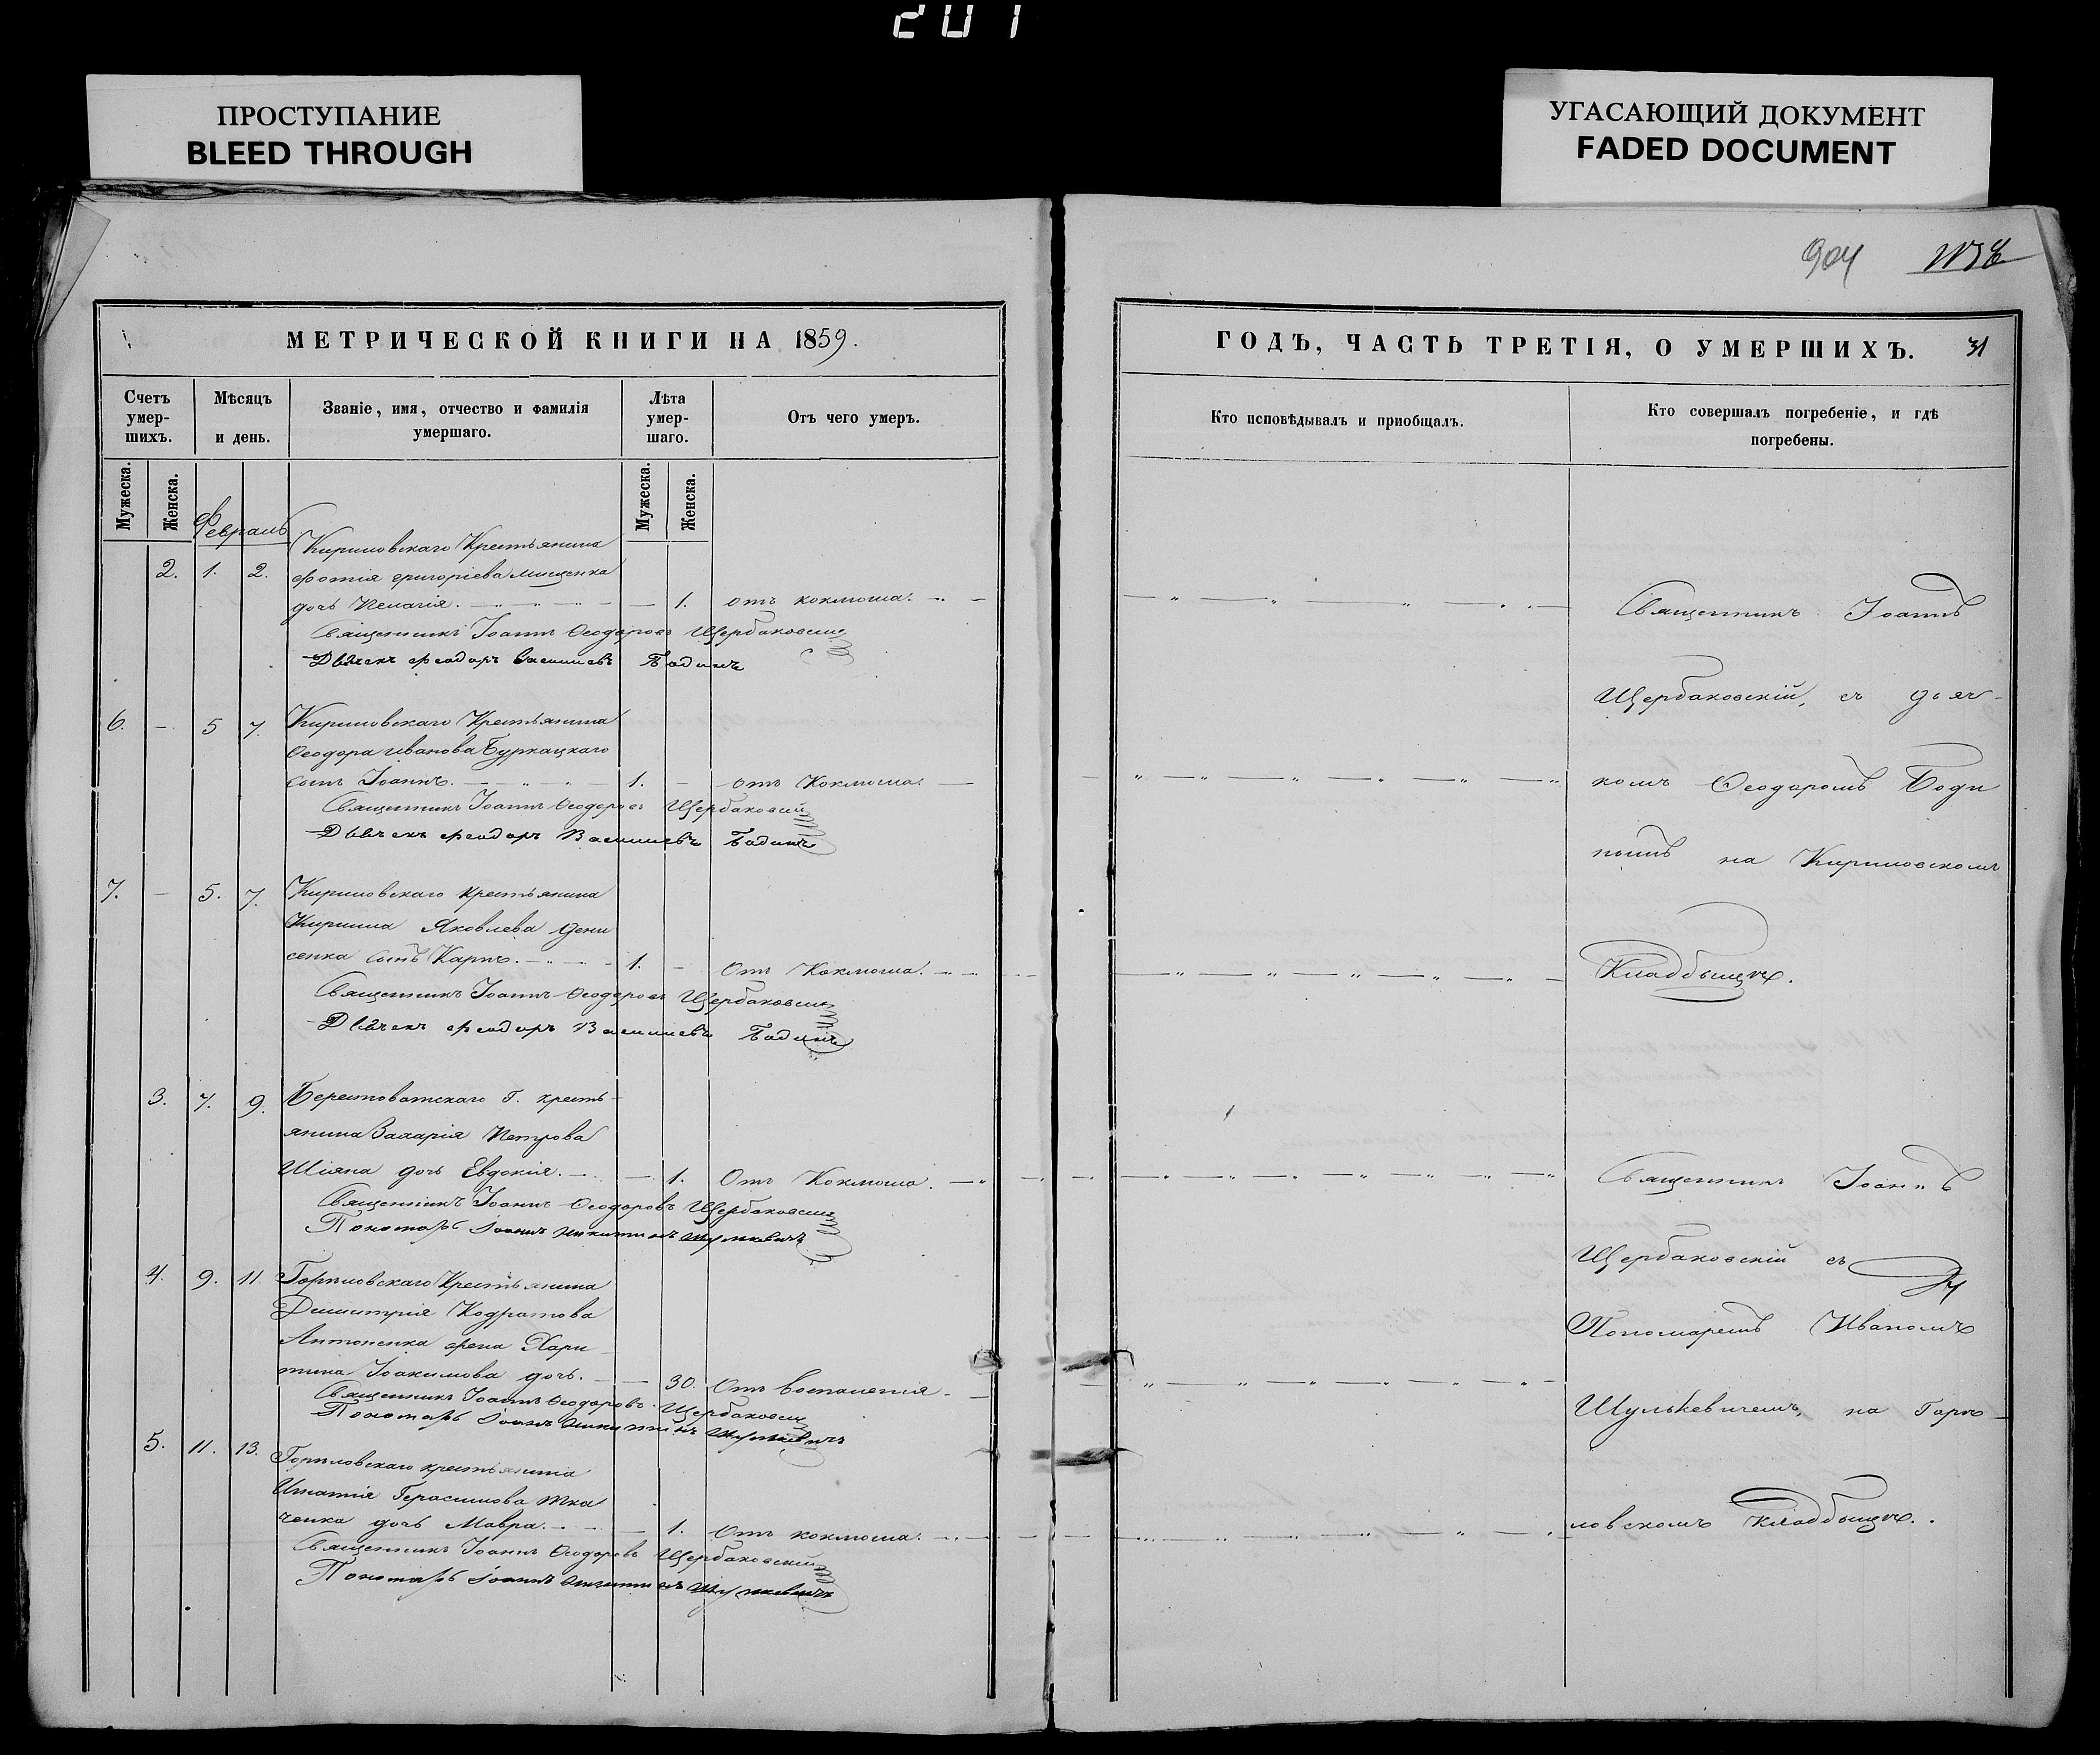 201
ПРОСТУПАНИЕ
BLEED THROUGH
УГАСАЮЩИЙ ДОКУМЕНТ
FADED DOCUMENT
904
МЕТРИЧЕСКОЙ КНИГИ НА 1859.
Счетъ умер-шихъ.
Мѣсяцъ и день.
Званіе, имя, отчество и фамилія умершаго.
Лѣта умер-шаго.
Отъ чего умеръ.
Мужеска.
Женска.
Мужеска.
Женска.
Февраль
Кириловскаго Крестьянина
2. 1. 2. Фотія Григоріева Мищенка
дочь Пелагія. 1. отъ коклюша.
Священникъ Іоаннъ Ѳеодоровъ Щербаковскій
Дьячекъ Феодоръ Васильевъ Бодинъ
6. – 5 7. Кириловскаго Крестьянина
Ѳеодора Иванова Буркацкаго
сынъ Іоаннъ. 1. – отъ Коклюша.
Священникъ Іоаннъ Ѳеодоровъ Щербаковскій
Дьячекъ Феодоръ Васильевъ Бодинъ
7. – 5. 7. Кириловскаго крестьянина
Кирила Яковлева Дени
сенка сынъ Карпъ. 1. – Отъ Коклюша.
Священникъ Іоаннъ Ѳеодоровъ Щербаковскій
Дьячекъ Феодоръ Васильевъ Бодинъ
3. 7. 9. Берестоватскаго Г. кресть-
янина Захарія Петрова
Шіяна дочь Евдокія. 1. Отъ Коклюша.
Священникъ Іоаннъ Ѳеодоровъ Щербаковскій
Пономарь Іоаннъ Никитинъ Шулькевичъ
4. 9. 11 Горѣловскаго Крестьянина
Димитрія Кодратова
Антоненка жена Хари
тина Іоакимова дочь. 30. Отъ воспаленія
Священникъ Іоаннъ Ѳеодоровъ Щербаковскій
Пономарь Іоаннъ Никитинъ Шулькевичъ
5. 11. 13. Горѣловскаго крестьянина
Игнатія Герасимова Тка
ченка дочь Мавра. 1. Отъ коклюша.
Священникъ Іоаннъ Ѳеодоровъ Щербаковскій
Пономарь Іоаннъ Никитинъ Шулькевичъ
ГОДЪ, ЧАСТЬ ТРЕТІЯ, О УМЕРШИХЪ. 31
Кто исповѣдывалъ и пріобщалъ.
Кто совершалъ погребеніе, и гдѣ
погребены.
Священникъ Іоаннъ
Щербаковскій, съ дьяч-
комъ Ѳеодоромъ Боди
нымъ на Кириловскомъ
Кладбыщѣ.
Священникъ Іоаннъ
Щербаковскій съ
Пономаремъ Иваномъ
Шулькевичемъ, на Горѣ-
ловскомъ Кладбыщѣ.